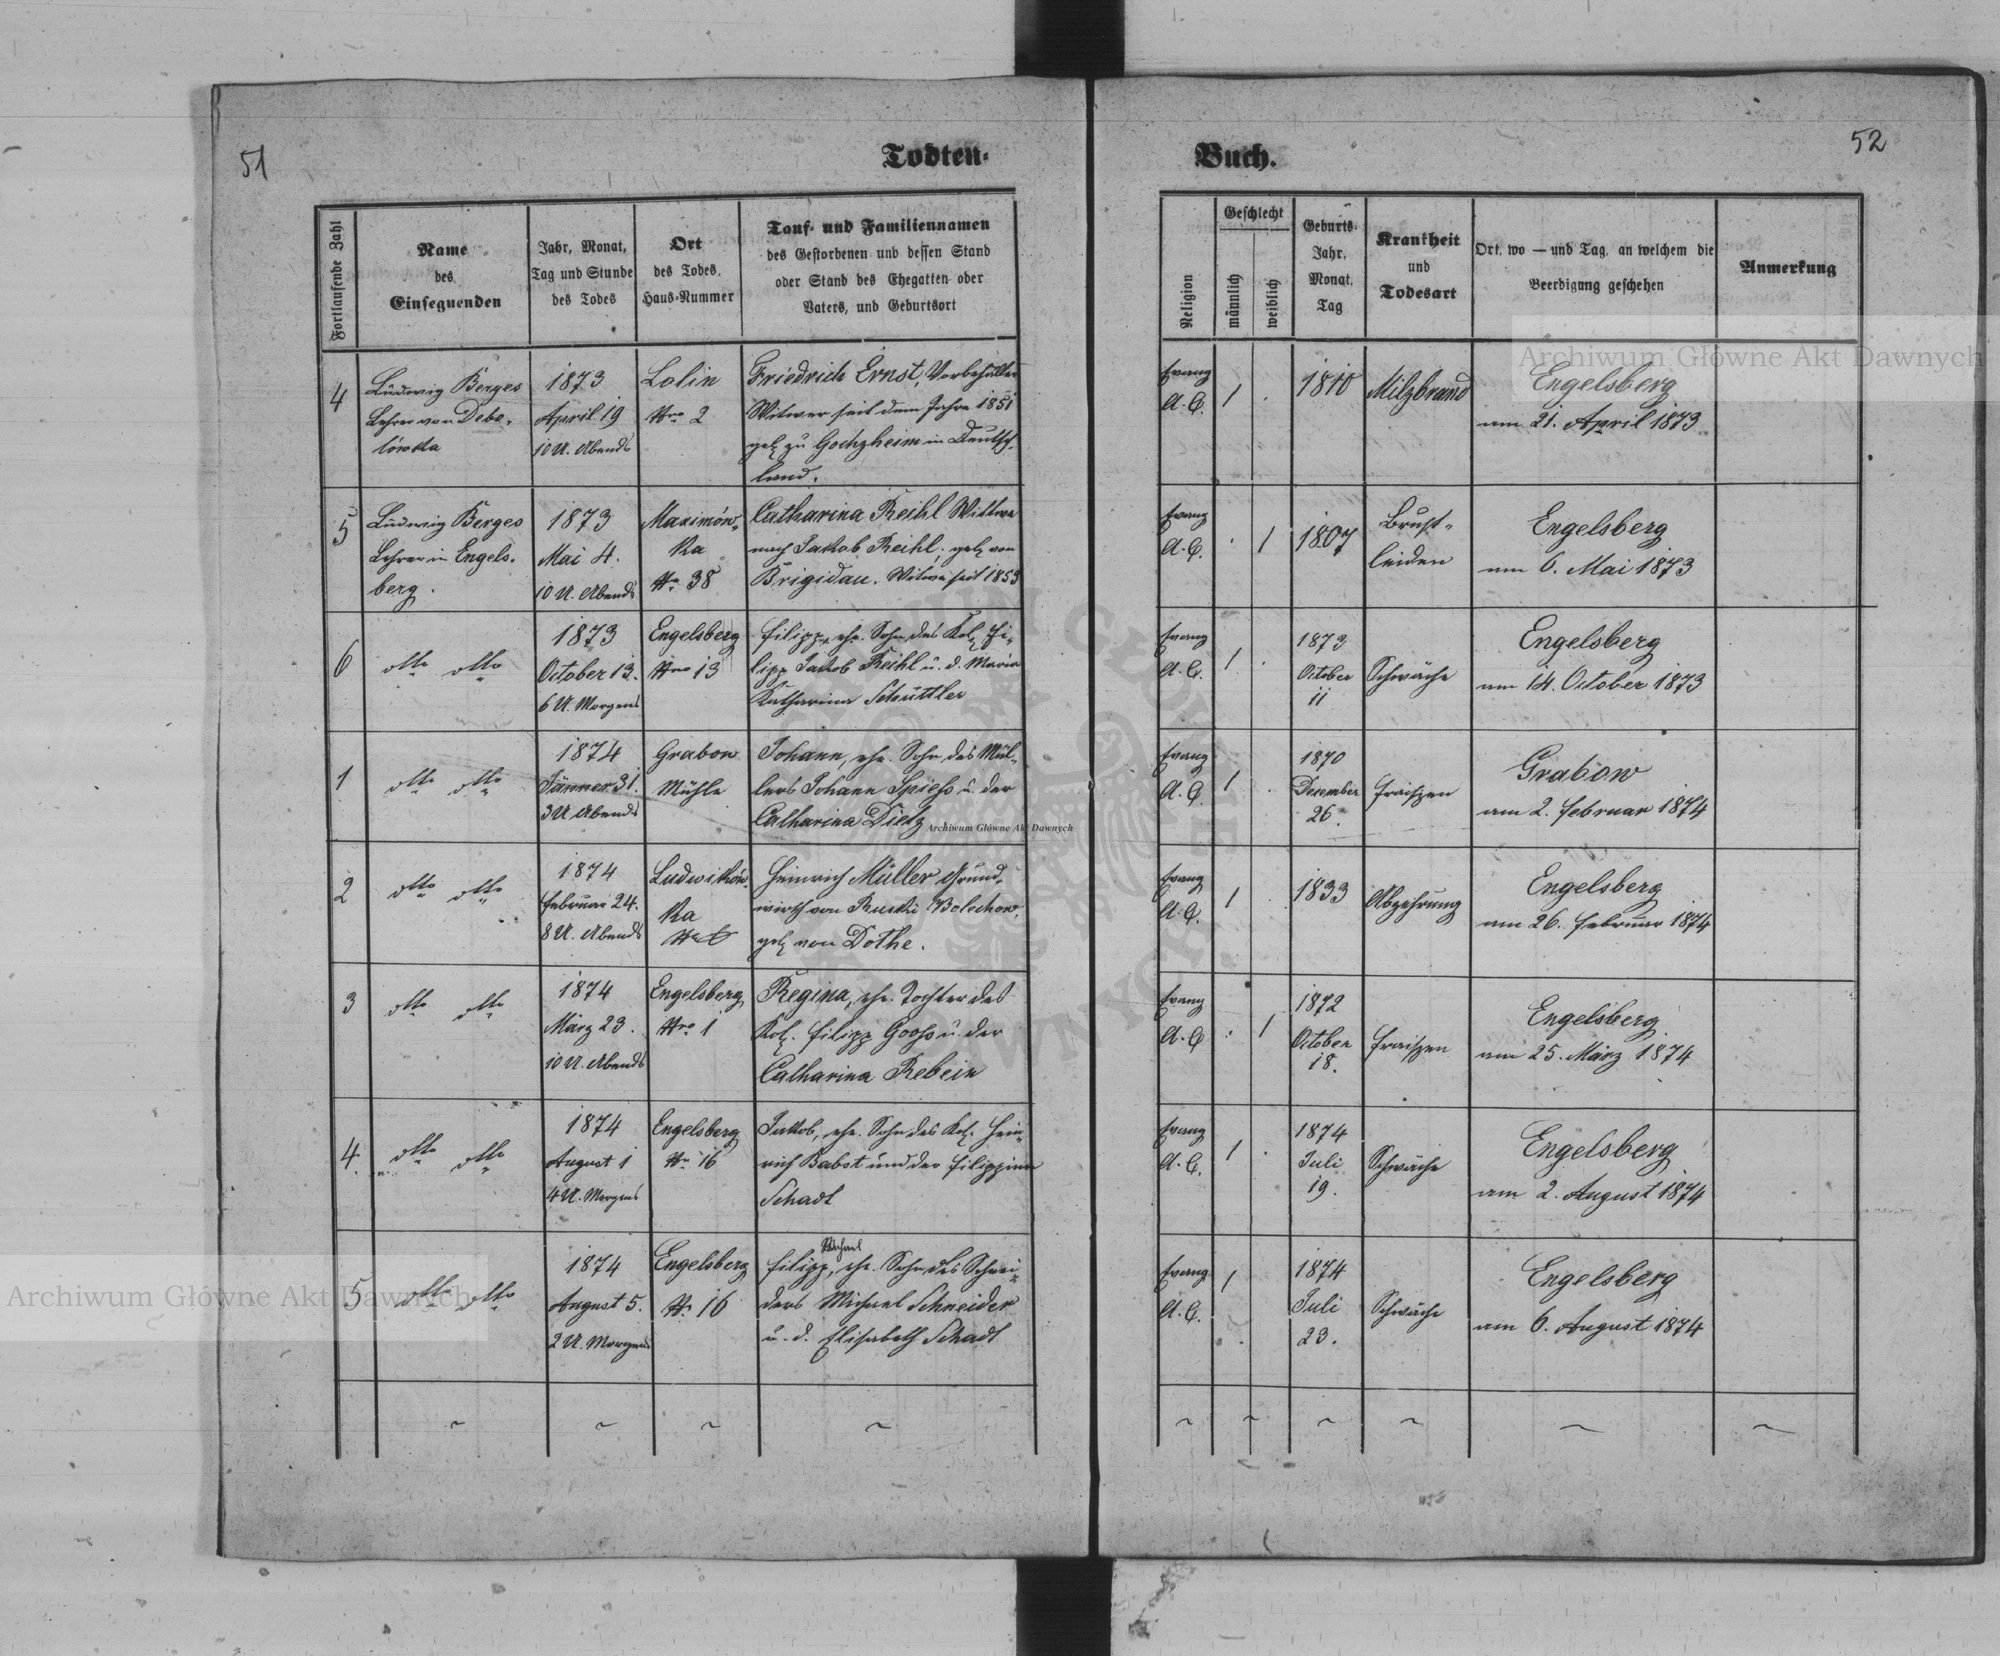 51
Todten-
Buch.
52
Fortlaufende Zahl
Name
des
Einsegnenden
Jahr, Monat,
Tag und Stunde
des Todes
Ort
des Todes,
Haus-Nummer
Tauf- und Familiennamen
des Gestorbenen und dessen Stand
oder Stand des Ehegatten oder
Vaters, und Geburtsort
Religion
Geschlecht
männlich
weiblich
Geburts-
Jahr,
Monat,
Tag
Krankheit
und
Todesart
Ort, wo — und Tag, an welchem die
Beerdigung geschehen
Anmerkung
4
Ludwig Berges
Lehrer von Debo-
lówka
1873
April 19
10 U. Abends
Lolin
Nro 2
Friedrich Ernst, Vorbehälter
Witwer seit dem Jahre 1851
geb. zu Gochzheim in Deutsch-
land.
Evang
A. C.
1
.
1810
Milzbrand
Engelsberg
am 21. April 1873
5
Ludwig Berges
Lehrer in Engels-
berg.
1873
Mai 4.
10 U. Abends
Maximów-
ka
Nro 38
Catharina Reihl Wittwe
nach Jakob Reihl, geb. von
Brigidau. Witwe seit 1853
Evang
A. C.
.
1
1807
Brust-
leiden
Engelsberg
am 6. Mai 1873
6
otto otto
1873
October 13.
6 U. Morgens
Engelsberg
Nro 13
Filipp, ehe. Sohn des Kol. Fi-
lipp Jakob Reihl u. d. Maria
Katharina Schüttler
Evang
A. C.
1
.
1873
October
11
Schwäche
Engelsberg
am 14. October 1873
1
otto otto
1874
Jänner 31.
3 U Abends
Grabow
Mühle
Johann, ehe. Sohn des Mül-
lers Johann Spiess u. der
Catharina Dietz
Evang
A. C.
1
.
1870
Dezember
26.
Fraissen
Grabow
am 2. Februar 1874
2
otto otto
1874
Februar 24.
8 U. Abends
Ludwików-
ka
Heinrich Müller Grund-
wirth von Ruski Bolechow,
geb. von Dothe.
Evang
A. C.
1
.
1833
Abzehrung
Engelsberg
am 26. Februar 1874
3
otto otto
1874
März 23.
10 U. Abends
Engelsberg
Nro 1
Regina, ehe. Tochter des
Kol. Filipp Gooss u. der
Catharina Rebein
Evang
A. C
.
1
1872
October
18.
Fraissen
Engelsberg
am 25. März 1874
4.
otto otto
1874
August 1
4 U. Morgens
Engelsberg
Nro 16
Jakob, ehe. Sohn des Kol. Hein-
rich Babst und der Filippina
Schadt
Evang
A. C.
1
.
1874
Juli
19.
Schwäche
Engelsberg
am 2. August 1874
5
otto otto
1874
August 5.
2 U. Morgens
Engelsberg
N. 16
Michael
Filipp, ehe. Sohn des Schnei-
ders Michael Schneider
u. d. Elisabeth Schadt
Evang
A. C.
1
.
1874
Juli
23.
Schwäche
Engelsberg
am 6. August 1874
Archiwum Główne Akt Dawnych
Archiwum Główne Akt Dawnych
Archiwum Główne Akt Dawnych